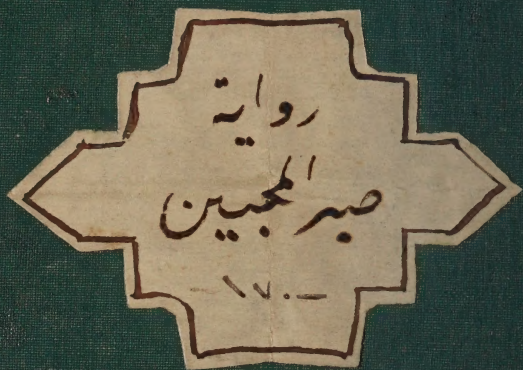 رواية
صبر المحبين
-١٧٠-